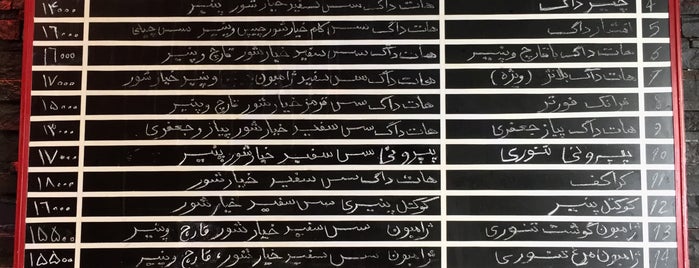 ۴ چیز داگ هات داگ سس سفید خیارشور پنیر ۱۴۰۰۰
۵ افشار داگ هات داگ سس کلم خیارشور چیپس و پنیر سس چیلی ۱۶۰۰۰
۶ هات داگ با قارچ و پنیر هات داگ سس سفید خیارشور قارچ و پنیر ۱۶۰۰۰
۷ هات داگ بلانز (ویژه) هات داگ سس سفید ژامبون و پنیر خیارشور ۱۷۰۰۰
۸ فرانک فورتر هات داگ سس قرمز خیارشور قارچ و پنیر ۱۵۰۰۰
۹ هات داگ پیاز جعفری هات داگ سس سفید خیارشور پیاز و جعفری ۱۳۰۰۰
۱۰ پپرونی تنوری پپرونی سس سفید خیارشور پنیر ۱۷۰۰۰
۱۱ کراکف هات داگ سس سفید خیارشور ۱۸۰۰۰
۱۲ کوکتل پنیر کوکتل پنیری سس سفید خیارشور ۱۶۰۰۰
۱۳ ژامبون گوشت تنوری ژامبون سس سفید خیارشور قارچ و پنیر ۱۵۵۰۰
۱۴ ژامبون مرغ تنوری ژامبون سس سفید خیارشور، قارچ و پنیر ۱۵۵۰۰